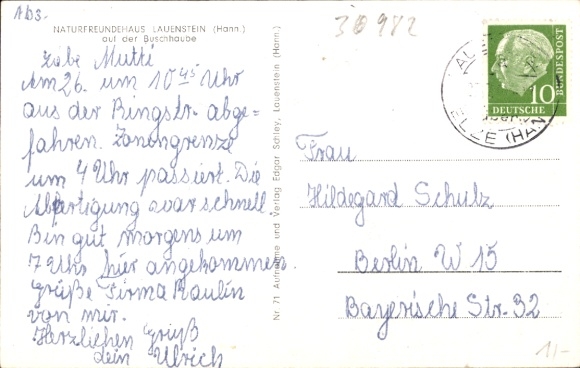 Abs.
30982
NATURFREUNDEHAUS LAUENSTEIN (Hann.)
auf der Buschhaube
Liebe Mutti
Am 26. um 10 45 Uhr
aus der Ringstr. abge=
fahren. Zonengrenze
um 4 Uhr passiert. Die
Abfertigung war schnell.
Bin gut morgens um
7 Uhr hier angekommen.
Grüße Firma Raulin
von mir.
Herzlichen Gruß
dein Ulrich
Nr. 71 Aufnahme und Verlag Edgar Schley, Lauenstein (Hann.)
DEUTSCHE
BUNDESPOST
10
ELZE (HAN
Frau
Hildegard Schulz
Berlin W 15
Bayerische Str. 32
1/-